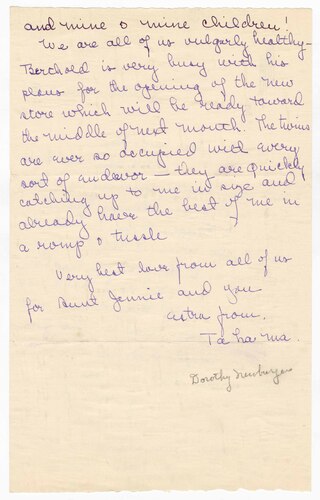 and mine & mine children!
We are all of us vulgarly healthy -
Berthold is very busy with his
plans for the opening of the new
store which will be ready toward
the middle of next month. The twins
are ever so occupied with every
sort of endeavor — they are quickly
catching up to me in size and
already have the best of me in
a romp & tussle
Very best love from all of us
for Aunt Jennie and you
extra from,
Ta ha ma.
Dorothy